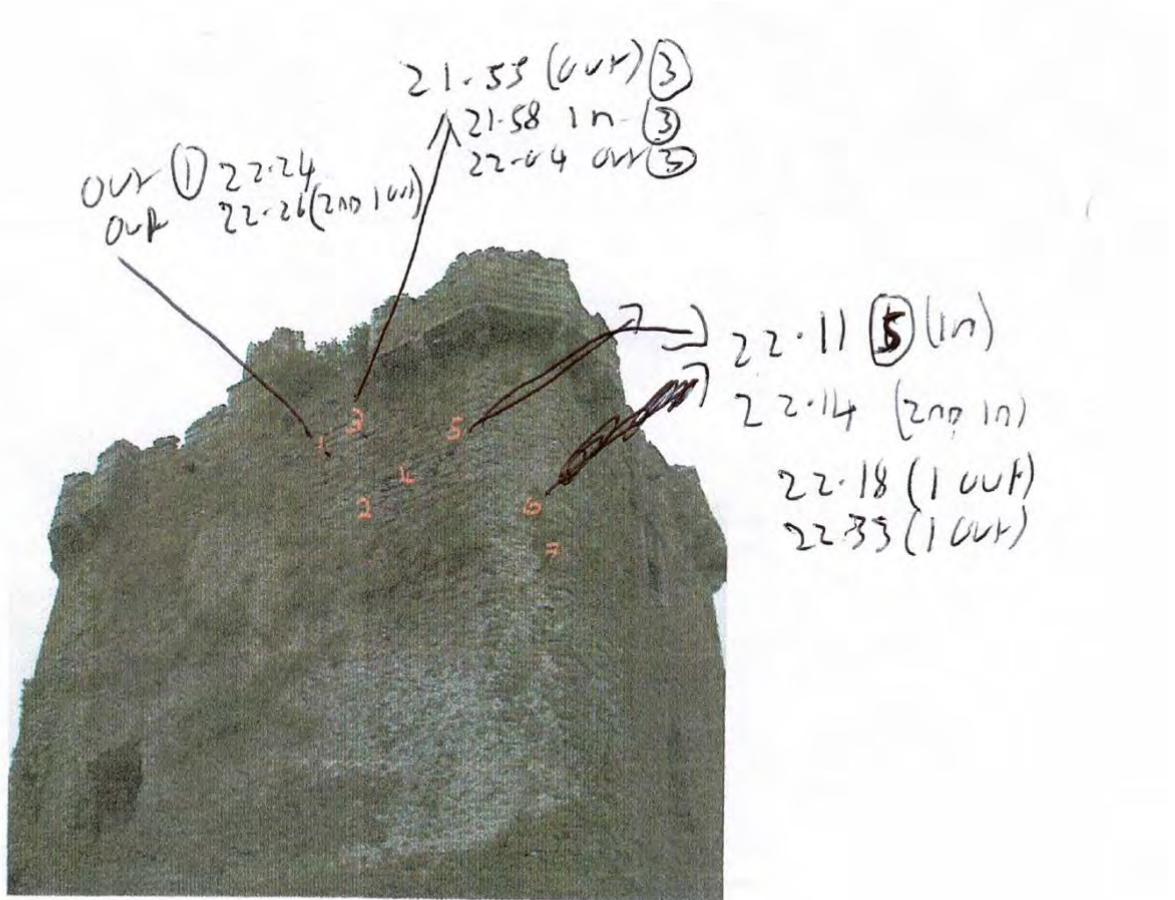 21.55 (out) 3
21.58 in 3
22.04 out 3
out 1 22.24
out 22.26 (2nd 1 out)
22.11 5 (in)
22.14 (2nd in)
22.18 (1 out)
22.33 (1 out)
3
1
5
4
2
6
7